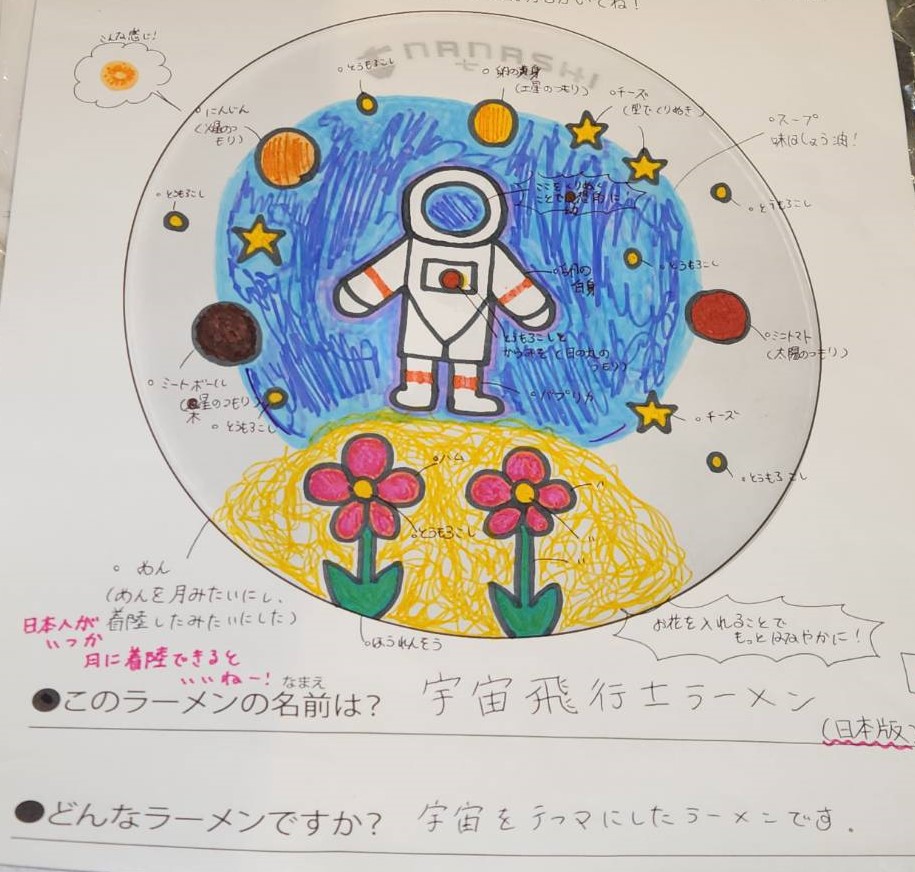 いてね！
こんな感じ！
とうもろこし
卵の黄身
(土星のつもり)
チーズ
(型でくりぬき)
にんじん
(火星のつもり)
スープ
味はしょう油！
とうもろこし
とうもろこし
ここをくりぬく
ことで
とうもろこし
卵の
白身
とうもろこしと
日の丸の
つもり)
ミニトマト
(太陽のつもり)
ミートボール
(木星のつもり)
とうもろこし
パプリカ
チーズ
ハム
〃
とうもろこし
〃
〃
とうもろこし
めん
(めんを月みたいにし、
着陸したみたいにした)
日本人が
いつか
月に着陸できると
いいねー！
ほうれんそう
お花を入れることで
もっとはなやかに！
●このラーメンの名前は？ 宇宙飛行士ラーメン
なまえ
(日本版)
●どんなラーメンですか？ 宇宙をテーマにしたラーメンです.